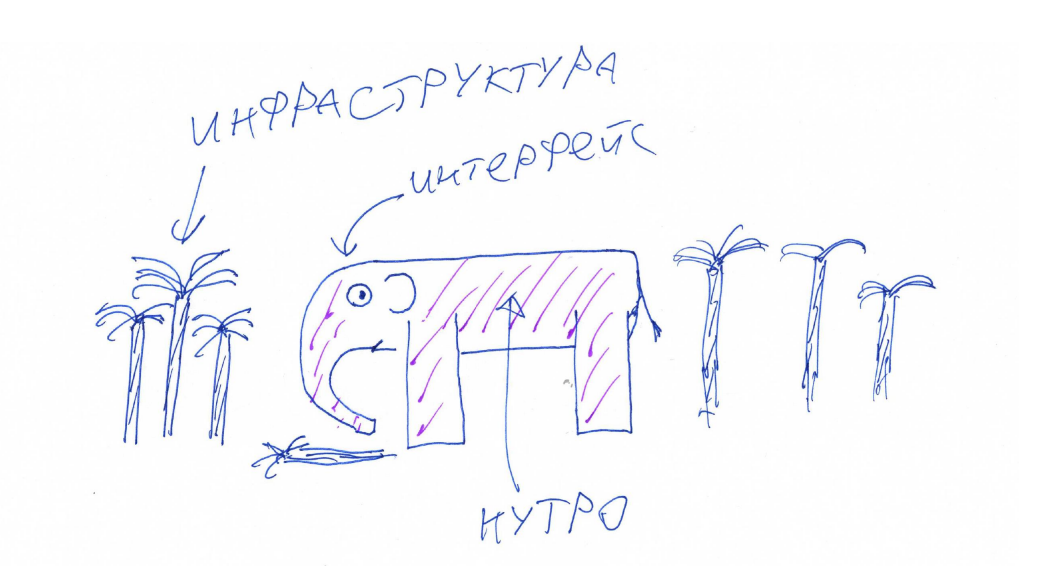 ИНФРАСТРУКТУРА
ИНТЕРФЕЙС
НУТРО